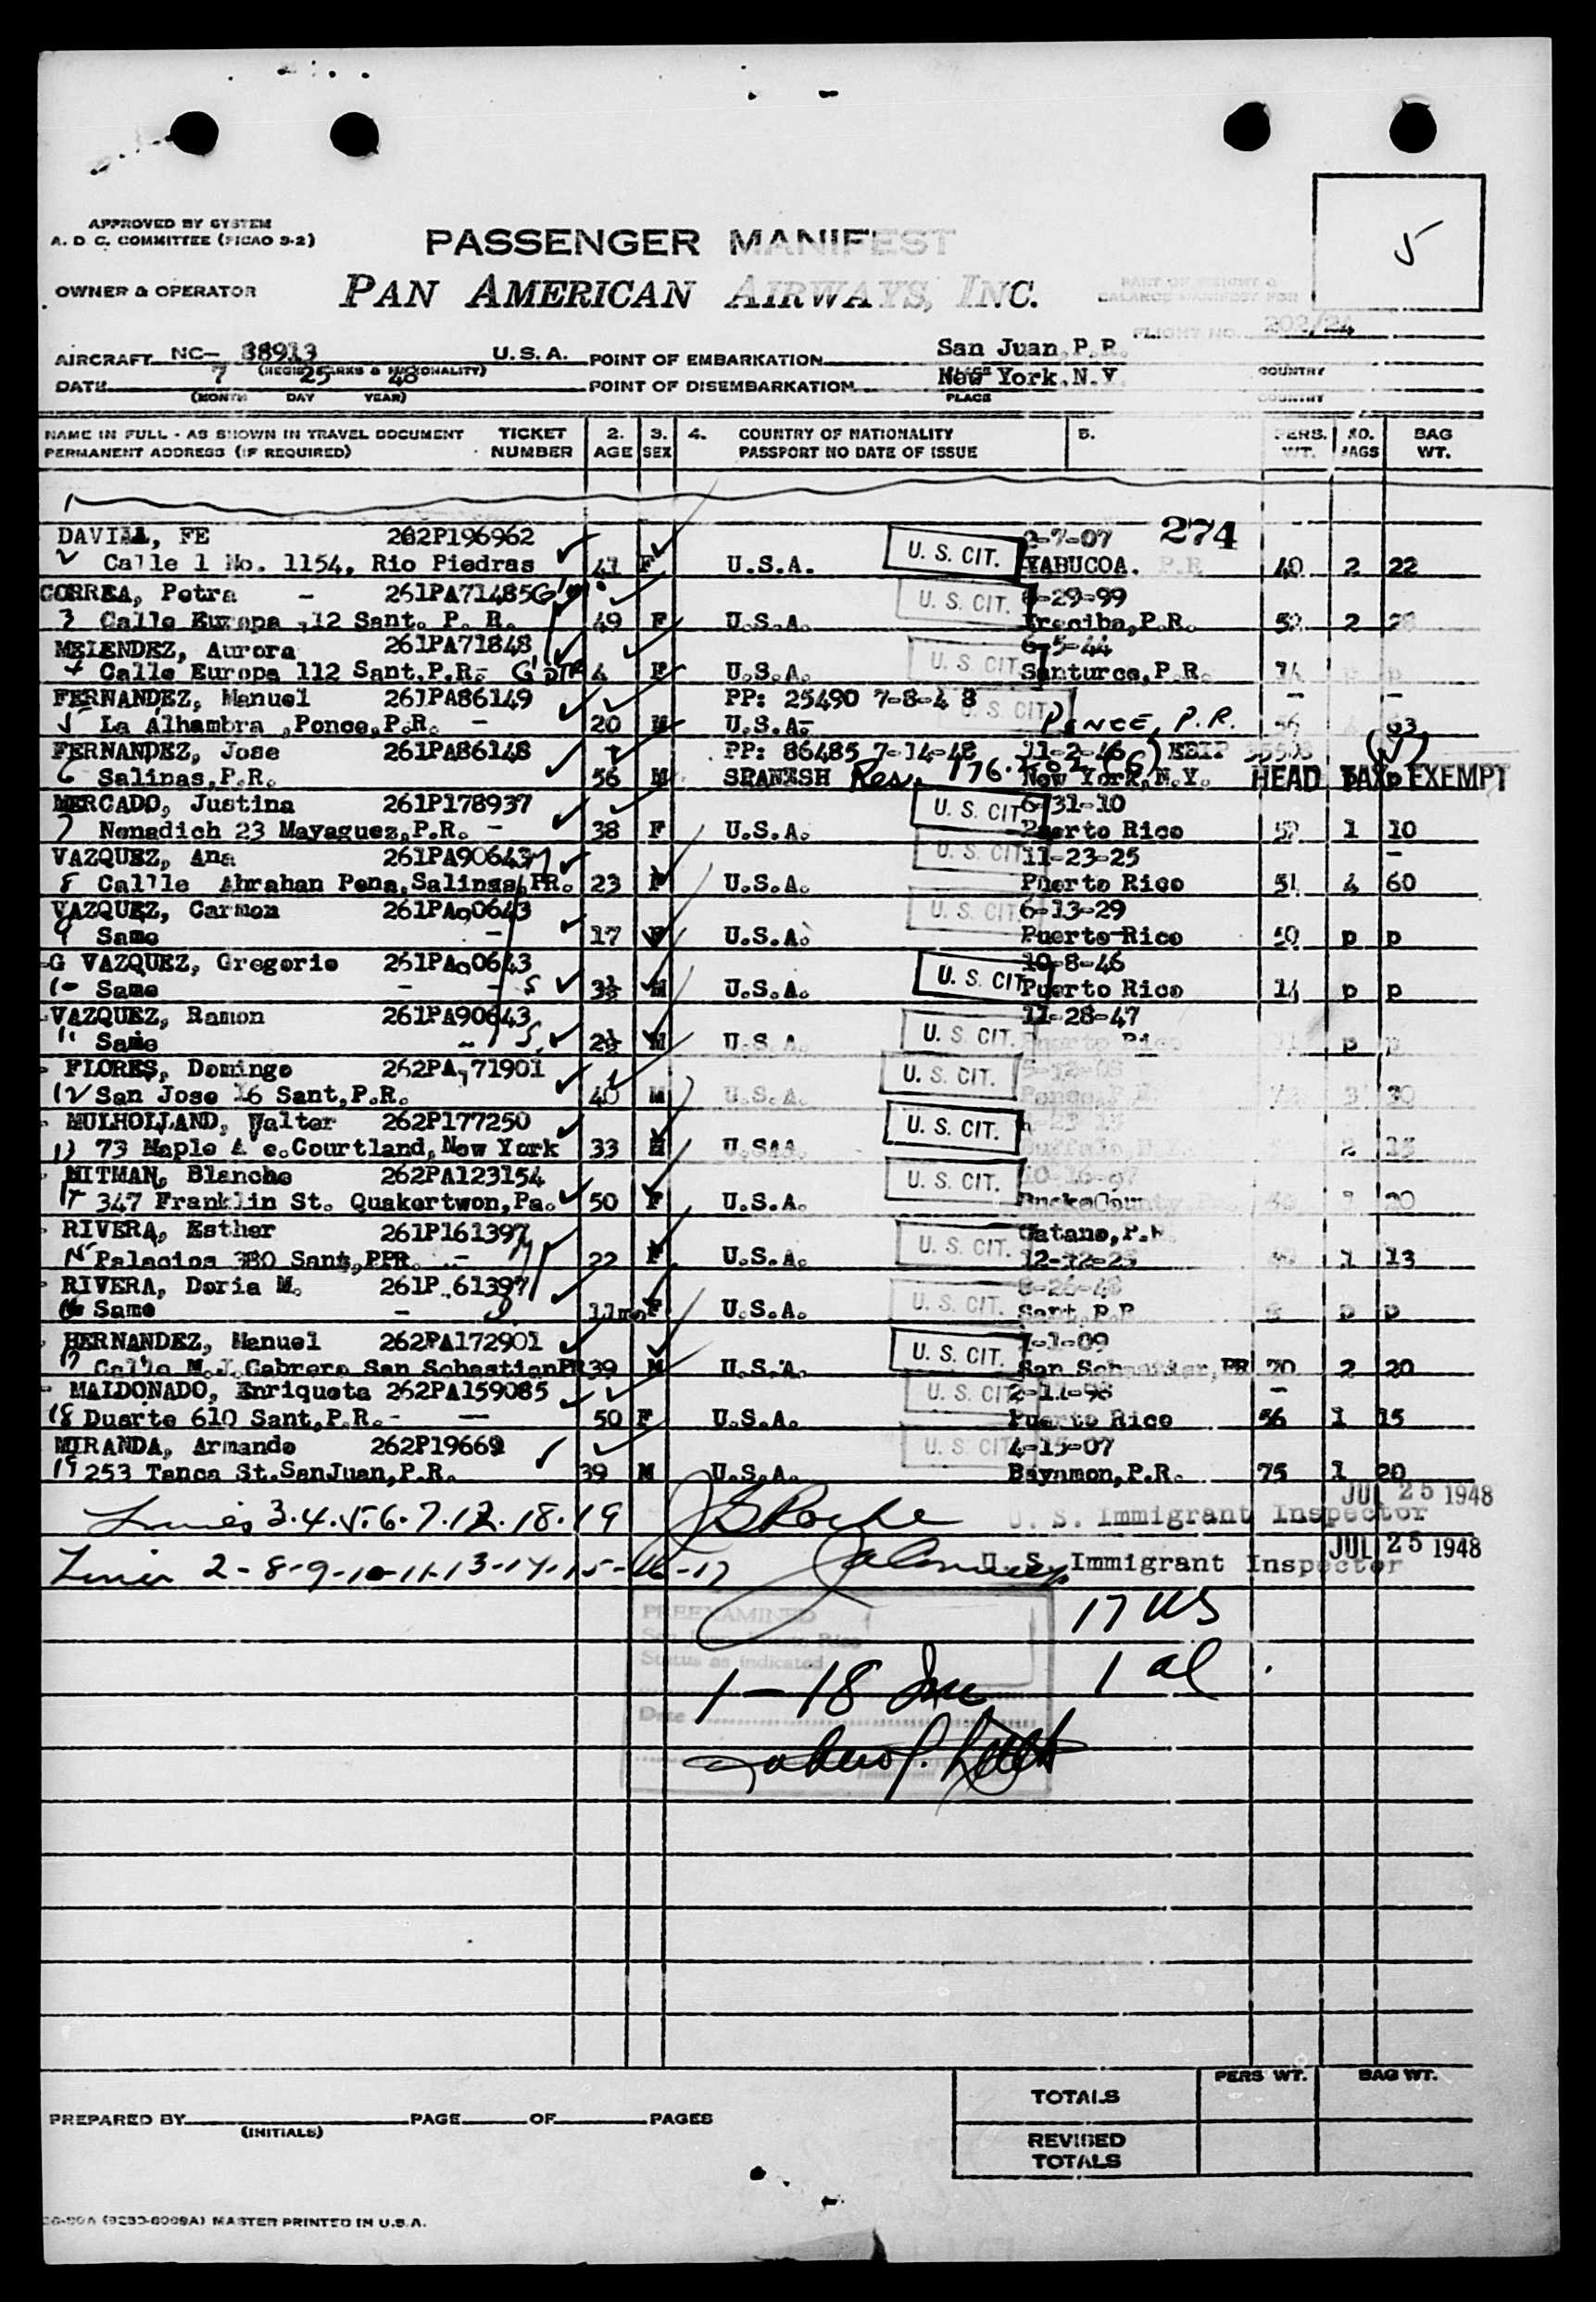 APPROVED BY SYSTEM
A. D. C. COMMITTEE (PICAO 9-2)
PASSENGER MANIFEST
5
OWNER & OPERATOR
PAN AMERICAN AIRWAYS, INC.
PART OF WEIGHT &
BALANCE MANIFEST FOR
FLIGHT NO. 202/24
AIRCRAFT NC- 38913 U.S.A. POINT OF EMBARKATION San Juan, P.R.
DATE 7 25 48 POINT OF DISEMBARKATION New York, N.Y. COUNTRY
(MONTH DAY YEAR) PLACE COUNTRY
NAME IN FULL - AS SHOWN IN TRAVEL DOCUMENT TICKET 2. 3. 4. COUNTRY OF NATIONALITY 5. PERS. NO. BAG
PERMANENT ADDRESS (IF REQUIRED) NUMBER AGE SEX PASSPORT NO DATE OF ISSUE WT. BAGS WT.
1
DAVILA, FE 262P196962 U. S. CIT. -7-07 274
2 Calle 1 No. 1154, Rio Piedras 41 F U.S.A. YABUCOA. P.R 40 2 22
CORREA, Petra - 261PA71485 U. S. CIT. -29-99
3 Calle Europa ,12 Sant. P. R. 49 F U.S.A. P.R. 2
MELENDEZ, Aurora 261PA71848 U. S. CIT 6-5-44
4 Calle Europa 112 Sant,P.R- 4 F U.S.A. Santurce,P.R.
FERNANDEZ, Manuel 261PA86149 PP: 25490 7-8-4 8 U. S. CIT - -
5 La Alhambra ,Ponce,P.R. - 20 M U.S.A- PONCE, P.R. 63
FERNANDEZ, Jose 261PA86148 PP: 86485 7-14-48 11-2-46
6 Salinas,P.R. 56 M SPANISH Res. New York,N.Y. HEAD TAX EXEMPT
MERCADO, Justina 261P178937 U. S. CIT 6-31-10
7 Nenadich 23 Mayaguez,P.R. - 38 F U.S.A. Puerto Rico 1 10
VAZQUEZ, Ana 261PA90643 U. S. CIT 11-23-25 -
8 Callle Abrahan Pena,Salinas,PR. 23 F U.S.A. Puerto Rico 51 4 60
VAZQUEZ, Carmen 261PA90643 U. S. CIT 6-13-29
9 Same - 17 F U.S.A. Puerto Rico p p
-G VAZQUEZ, Gregorio 261PA90643 10-8-46
10 Same - - 3½ M U.S.A. U. S. CIT Puerto Rico 14 p p
VAZQUEZ, Ramon 261PA90643 11-28-47
11 Same - 2½ M U.S.A. U. S. CIT. p p
FLORES, Domingo 262PA 71901 U. S. CIT.
12 San Jose 16 Sant,P.R. 40 M U.S.A. 3 30
MULHOLLAND, Walter 262P177250 U. S. CIT.
13 73 Maple A e.Courtland,New York 33 M U.SAA. Buffalo,N.Y. 2 15
MITMAN, Blanche 262PA123154 U. S. CIT.
14 347 Franklin St. Quakertwon,Pa. 50 F U.S.A. 20
RIVERA, Esther 261P161397 U. S. CIT. Catano,P.R
15 Palacios 380 Sant,PPR. - 22 F U.S.A. 12-12-25 1 13
RIVERA, Doria M. 261P 61397 U. S. CIT. 8-26-48
16 Same - 11mo F U.S.A. Sant.P.R p p
HERNANDEZ, Manuel 262PA172901 U. S. CIT. 1-1-09
17 Calle M.J.Cabrera San SebastianPR 39 M U.S.A. San Sebastian,PR 70 2 20
MALDONADO, Enriqueta 262PA159085 U. S. CIT 2-11-98 -
18 Duarte 610 Sant,P.R.- - 50 F U.S.A. Puerto Rico 56 1 15
MIRANDA, Armando 262P19669 U. S. CIT 4-15-07
19 253 Tanca St.SanJuan,P.R. 39 M U.S.A. Bayamon,P.R. 75 1 20
Lines 3.4.5.6.7.12.18.19 JUL 25 1948
U. S. Immigrant Inspector
Lines 2-8-9-10-11-13-14-15-16-17 JUL 25 1948
U. S. Immigrant Inspector
PREEXAMINED
San Juan, Puerto Rico
Status as indicated
17 US
1 al
1-18 Inc
Date
TOTALS PERS WT. BAG WT.
PREPARED BY PAGE OF PAGES
(INITIALS)
REVISED
TOTALS
MASTER PRINTED IN U.S.A.